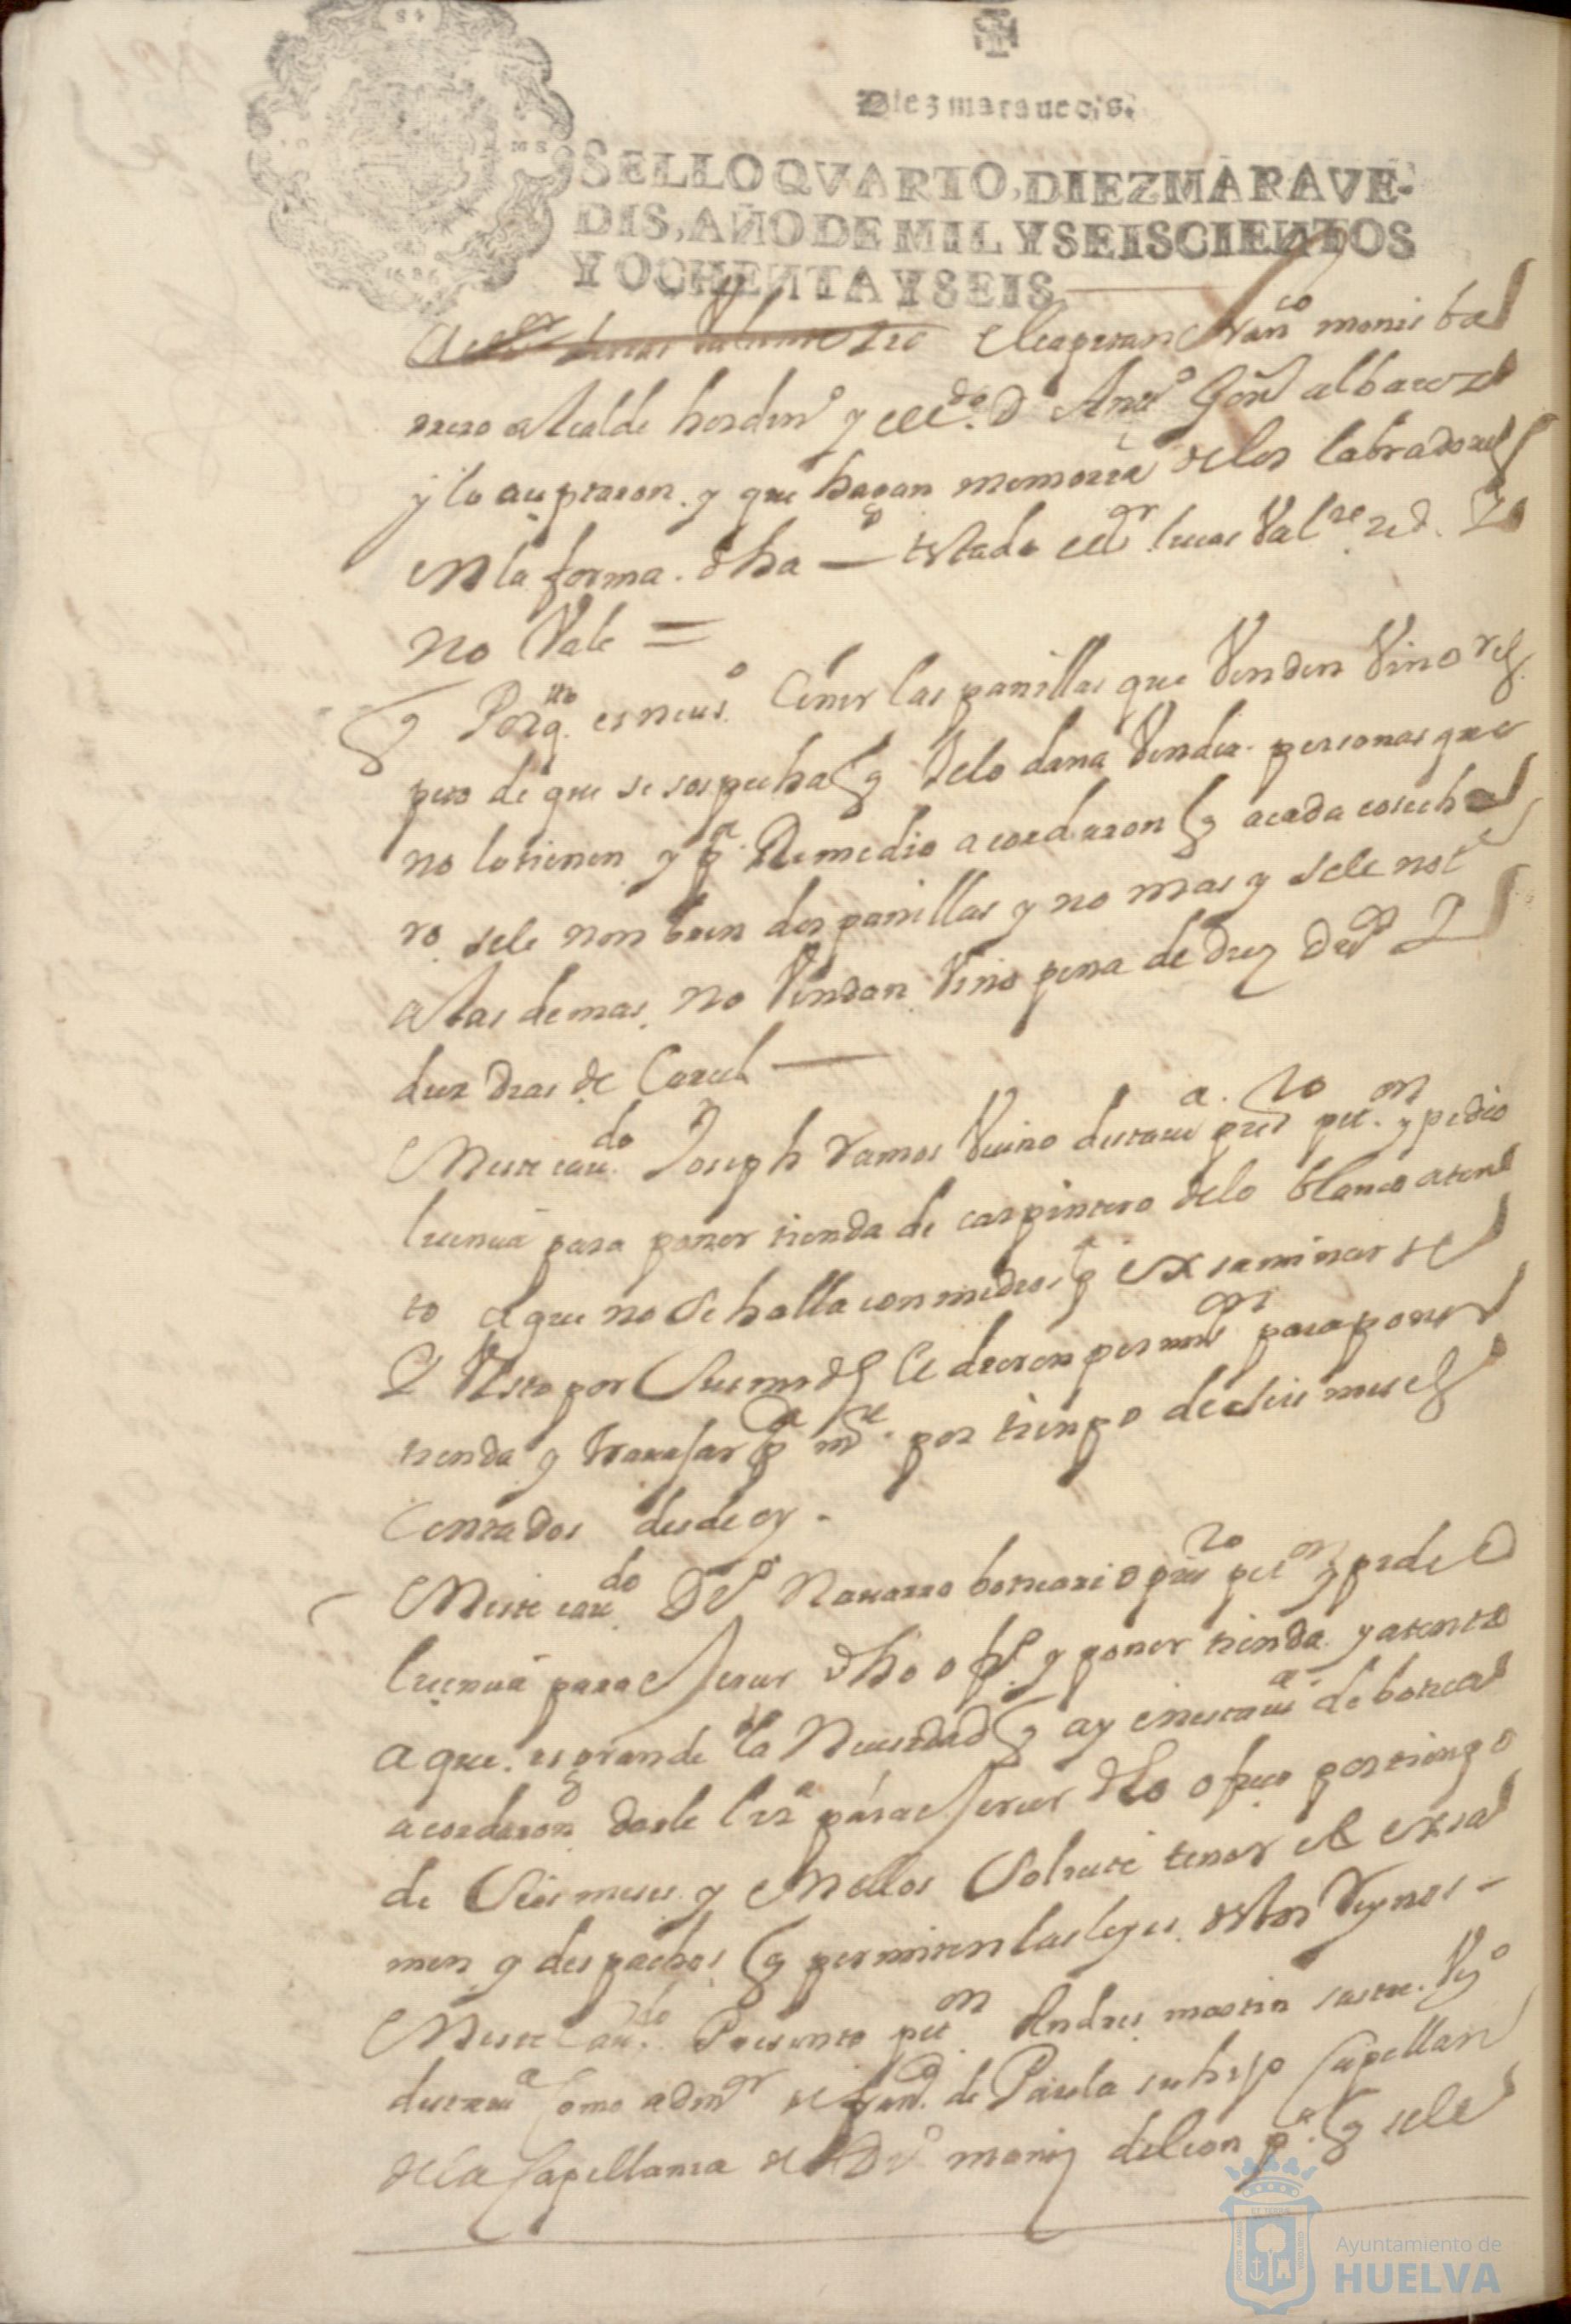 Diez maravedis.
SELLO QVARTO, DIEZ MARAVE-
DIS, AÑO DE MIL Y SEISCIENTOS
Y OCHENTA Y SEIS
1686
el capitan Juanº monis ba
rrero alcalde hordinº y D Antº Gonz albarez
y lo acyptaron. y que hagan memoria de los labradores
en la forma. dha — testado lucas Valte
no Vale =
Porqto es necesº Ceñir las panillas que Venden Vino res
peto de que se sospecha q de lo dan a Vender personas que
no lo tienen y pª Remedio acordaron q a cada coseche
ro se le nonbren dos panillas y no mas y se le notª
a las demas no Vendan Vino pena de diez dºs y
diez dias de Carcel —
En este cavdo Joseph Ramos Vecino desta vª preto petn y pidio
licencia para poner tienda de carpintero de lo blanco aten
to a que no se halla con medios q exsaminarse
y Visto por Sus mrds le dieron permn para poner
tienda y travajar pª mte por tienpo de seis meses
Contados desde oy.
En este cavdo Dº Navarro boticario preto petn y pide
licencia para eserser dho ofº y poner tienda y atento
a que es grande la Necesidad q ay en esta vª de botica
acordaron darle lizª para eserser dho oficio por tienpo
de Seis meses y en ellos Solicite tener el exsa
men y despachos q permiten las leyes destos Reynos -
En este Cavdo Presento petn Andres martin sastre Vzº
desta vª Como admor de franco de Paula su hijo Capellan
de la Capellania de Dº moniz de leon pª q se le
Ayuntamiento de
HUELVA